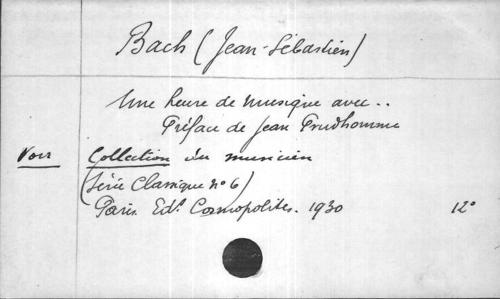 Bach (Jean-Sébastien)
Une heure de musique avec..
Préface de Jean Prudhomme
Voir Collection du musicien
(Série Classique no 6)
Paris. Edns Cosmopolites. 1930 12°